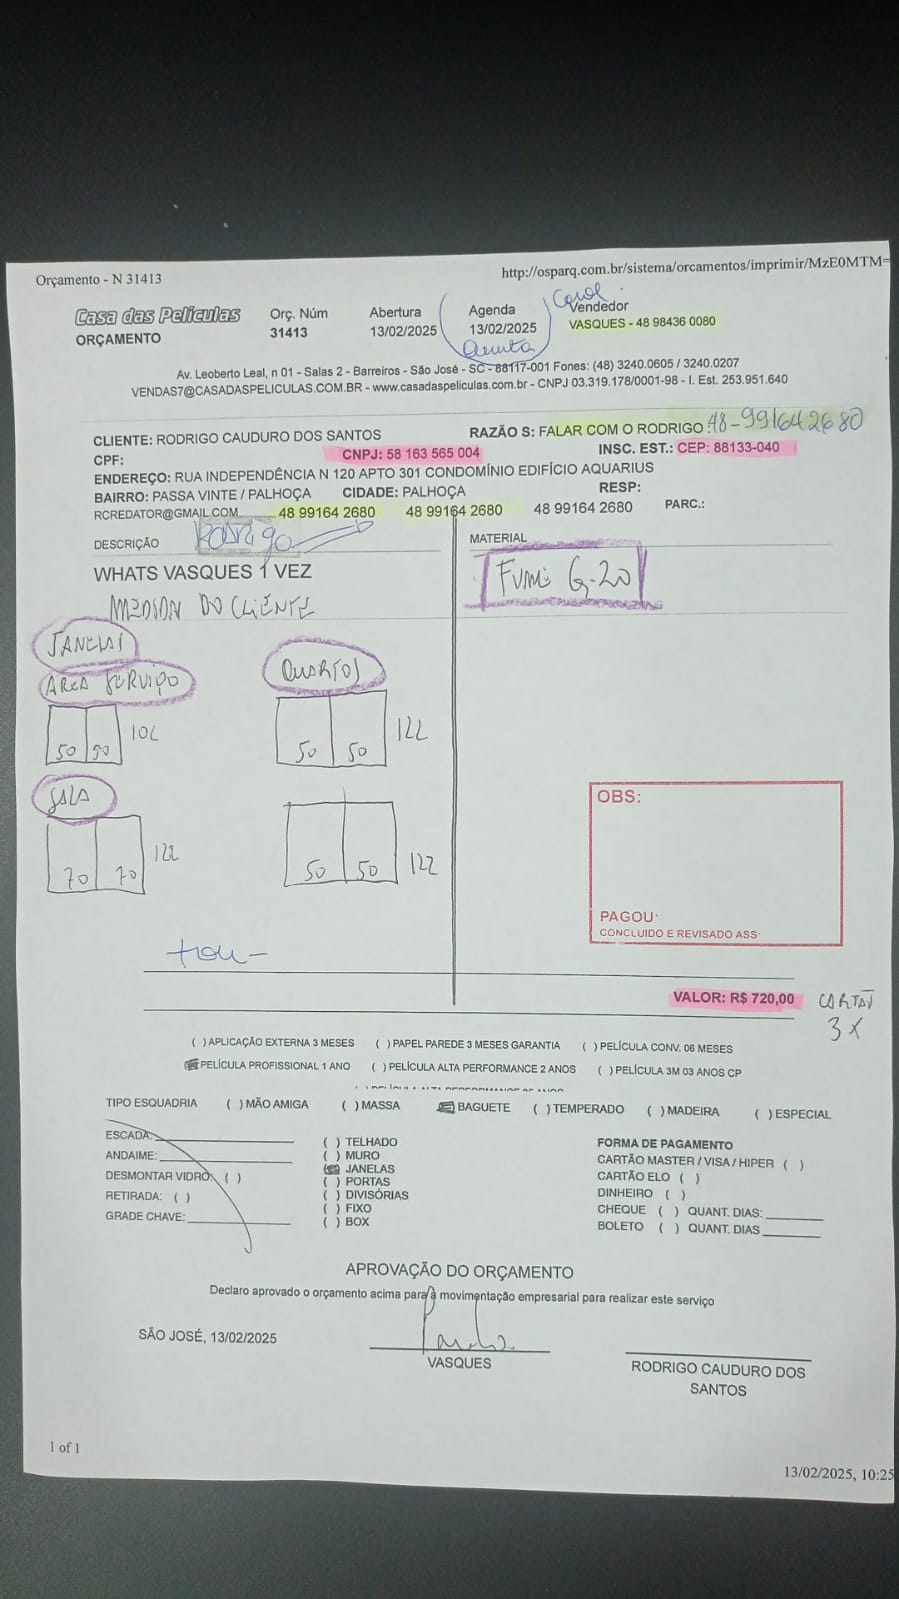 Orçamento - N 31413
http://osparq.com.br/sistema/orcamentos/imprimir/MzE0MTM=
Casa das Películas
ORÇAMENTO
Orç. Núm
31413
Abertura
13/02/2025
Agenda
13/02/2025
Carol
Vendedor
VASQUES - 48 98436 0080
Av. Leoberto Leal, n 01 - Salas 2 - Barreiros - São José - SC - 88117-001 Fones: (48) 3240.0605 / 3240.0207
VENDAS7@CASADASPELICULAS.COM.BR - www.casadaspeliculas.com.br - CNPJ 03.319.178/0001-98 - I. Est. 253.951.640
CLIENTE: RODRIGO CAUDURO DOS SANTOS
RAZÃO S: FALAR COM O RODRIGO 48-991642680
CPF:
CNPJ: 58 163 565 004
INSC. EST.: CEP: 88133-040
ENDEREÇO: RUA INDEPENDÊNCIA N 120 APTO 301 CONDOMÍNIO EDIFÍCIO AQUARIUS
BAIRRO: PASSA VINTE / PALHOÇA CIDADE: PALHOÇA RESP:
RCREDATOR@GMAIL.COM 48 99164 2680 48 99164 2680 48 99164 2680 PARC.:
DESCRIÇÃO
RODRIGO
MATERIAL
WHATS VASQUES 1 VEZ
FUMÊ G-20
DO CLIENTE
JANELAS
ÁREA SERVIÇO
50 50
QUARTOS
50 50 122
SALA
70 70 122
50 50 122
OBS:
PAGOU:
CONCLUIDO E REVISADO ASS:
VALOR: R$ 720,00
CARTÃO
3X
( ) APLICAÇÃO EXTERNA 3 MESES ( ) PAPEL PAREDE 3 MESES GARANTIA ( ) PELÍCULA CONV. 06 MESES
PELÍCULA PROFISSIONAL 1 ANO ( ) PELÍCULA ALTA PERFORMANCE 2 ANOS ( ) PELÍCULA 3M 03 ANOS CP
TIPO ESQUADRIA ( ) MÃO AMIGA ( ) MASSA BAGUETE ( ) TEMPERADO ( ) MADEIRA ( ) ESPECIAL
ESCADA:
ANDAIME:
DESMONTAR VIDRO: ( )
RETIRADA: ( )
GRADE CHAVE:
( ) TELHADO
( ) MURO
JANELAS
( ) PORTAS
( ) DIVISÓRIAS
( ) FIXO
( ) BOX
FORMA DE PAGAMENTO
CARTÃO MASTER / VISA / HIPER ( )
CARTÃO ELO ( )
DINHEIRO ( )
CHEQUE ( ) QUANT. DIAS:
BOLETO ( ) QUANT. DIAS
APROVAÇÃO DO ORÇAMENTO
Declaro aprovado o orçamento acima para a movimentação empresarial para realizar este serviço
SÃO JOSÉ, 13/02/2025
VASQUES
RODRIGO CAUDURO DOS
SANTOS
1 of 1
13/02/2025, 10:25